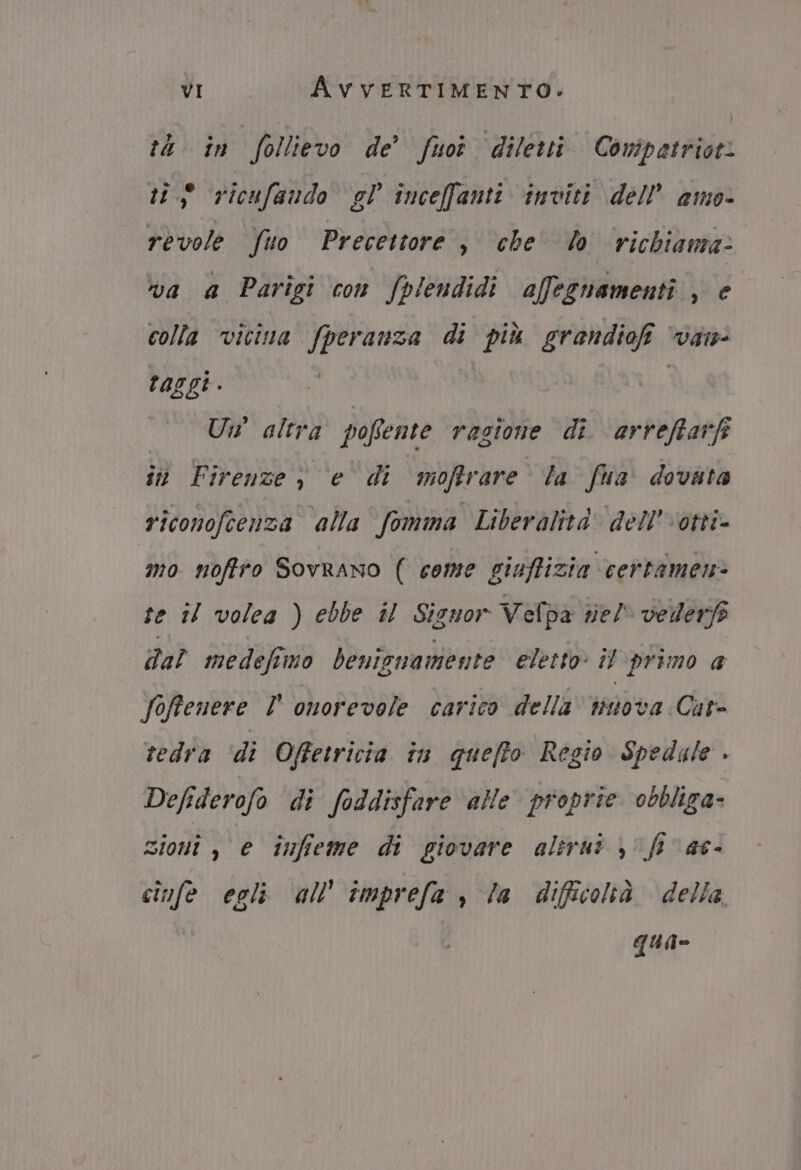 VI AVVERTIMENTO.
tà in ſollievo de' ſuoi diletti Compatriot-
ti, ricuſando gl' inceſſanti inviti dell' amo-
revole ſuo Precettore, che lo richiama-
va a Parigi con ſplendidi aſſegnamenti, e
colla vicina ſperanza di più grandioſi van-
taggi.
Un' altra poſſente ragione di arreſtarſi
in Firenze, e di moſtrare la ſua dovuta
riconoſcenza alla ſomma Liberalità dell' otti-
mo noſtro SOVRANO ( come giuſtizia certamen-
te il volea ) ebbe il Signor Veſpa nel vederſi
dal medeſimo benignamente eletto il primo a
ſoſtenere l' onorevole carico della nuova Cat-
tedra di Oſtetricia in queſto Regio Spedale.
Deſideroſo di ſoddisfare alle proprie obbliga-
zioni, e inſieme di giovare altrui, ſi ac-
cinſe egli all' impreſa, la difficoltà della
qua-